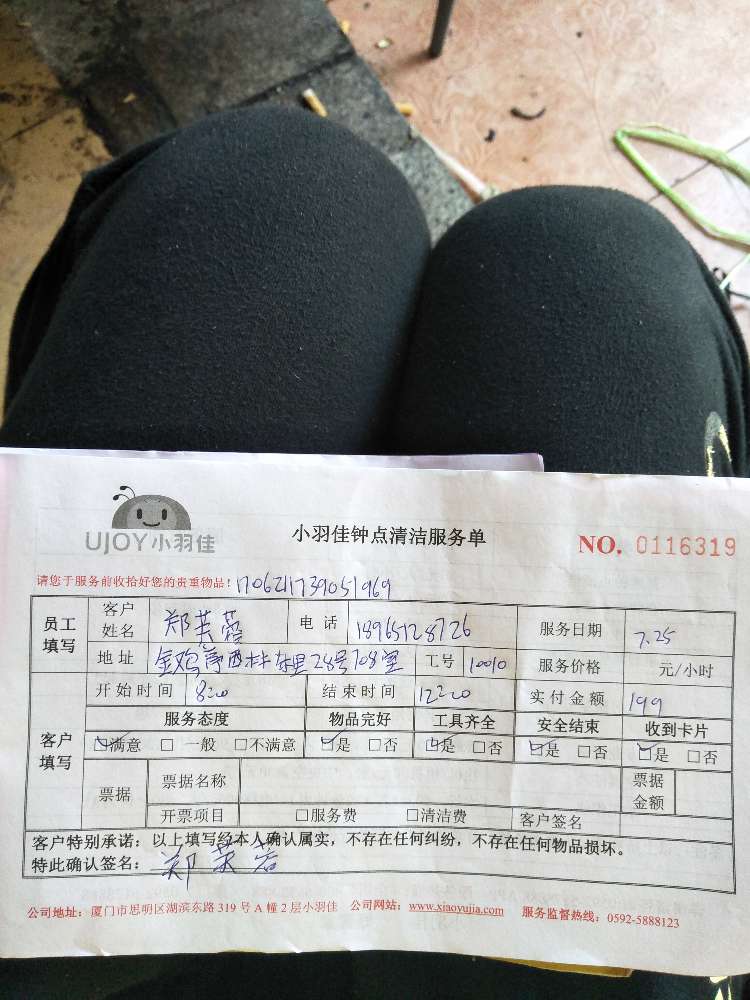 UJOY小羽佳
小羽佳钟点清洁服务单
NO. 0116319
请您于服务前收拾好您的贵重物品! 170621739051969
员工填写 客户姓名 郑芙蓉 电话 18965128726 服务日期 7.25
地址 西林东里28号708室 工号 10010 服务价格 元/小时
客户填写 开始时间 820 结束时间 1220 实付金额 199
服务态度 物品完好 工具齐全 安全结束 收到卡片
☑满意 □一般 □不满意 ☑是 □否 ☑是 □否 ☑是 □否 ☑是 □否
票据 票据名称 票据金额
开票项目 □服务费 □清洁费 客户签名
客户特别承诺：以上填写经本人确认属实，不存在任何纠纷，不存在任何物品损坏。
特此确认签名： 郑芙蓉
公司地址：厦门市思明区湖滨东路 319 号 A 幢 2 层小羽佳 公司网站：www.xiaoyujia.com 服务监督热线：0592-5888123